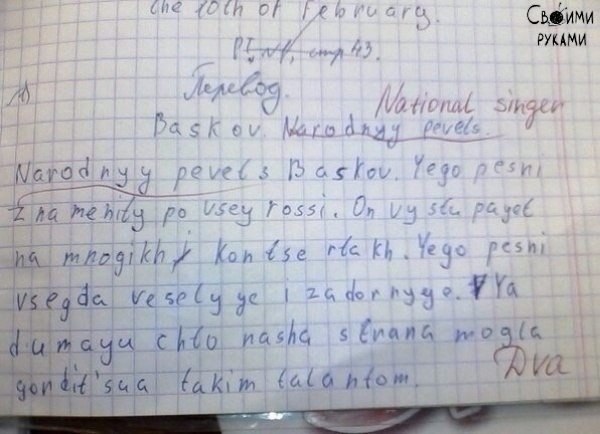 the 10th of February.
Своими
руками
PI, №1, стр 43.
Перевод.
National singer
Baskov. Narodnyy pevets.
Narodnyy pevets Baskov. Yego pesni
znamenity po vsey rossi. On vystupayet
na mnogikh kontsertakh. Yego pesni
vsegda veselyye i zadornyye. Ya
dumayu chto nasha strana mogla
gordit'sua takim talantom.
Dva